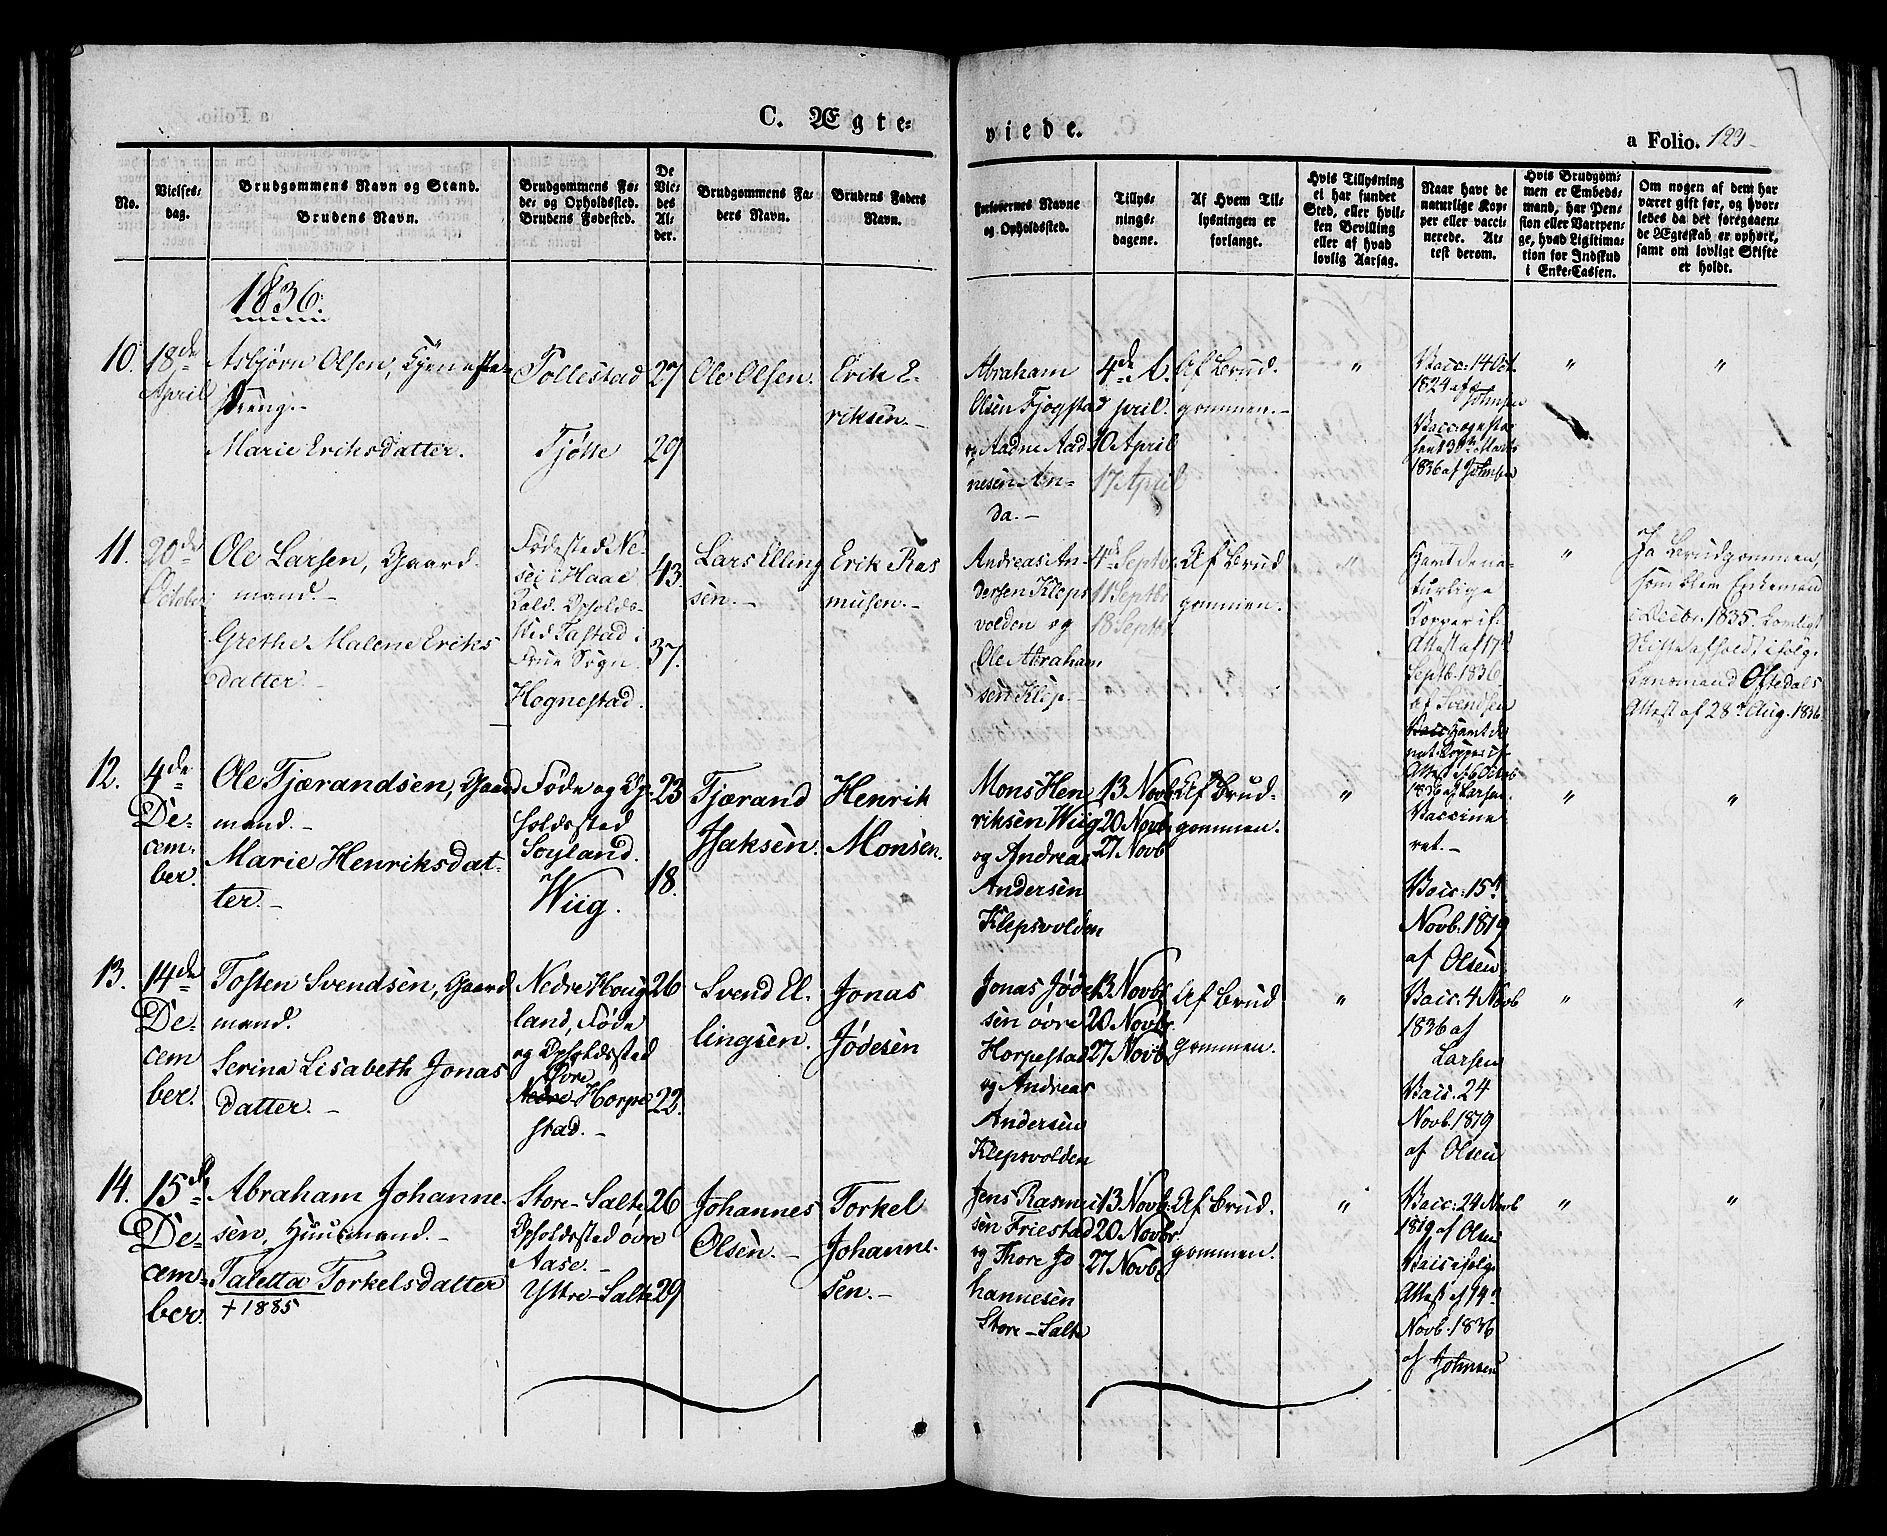 C. Ægte=
viede.
a Folio. 123
No.
Vielses-
dag.
Brudgommens Navn og Stand.
Brudens Navn.
Brudgommens Fø-
de- og Opholdssted.
Brudens Fødested.
De
Vie-
des
Al-
der.
Brudgommens Fa-
ders Navn.
Brudens Faders
Navn.
Forlovernes Navne
og Opholdssted.
Tillys-
nings-
dagene.
Af Hvem Til-
lysningen er
forlangt.
Hvis Tillysning
ei har fundet
Sted, eller hvil-
ken Bevilling
eller af hvad
lovlig Aarsag.
Naar havt de
naturlige Kop-
per eller vacci-
nerede. At-
test derom.
Hvis Brudgom-
men er Embeds-
mand, har Pen-
sion eller Vartpen-
ge, hvad Ligitima-
tion for Indskud
i Enke-Cassen.
Om nogen af dem har
været gift før, og hvor-
ledes da det foregaaen-
de Ægteskab er ophørt,
samt om lovligt Skifte
er holdt.
1836.
10.
18de
April
Asbjørn Olsen, Tjeneste-
dreng.-
Marie Eriksdatter.
Tollestad
Tjøtte
27
29
Ole Olsen.
Erik E-
riksen.-
Abraham
Olsen Fjogstad
og Aadne Aad-
nesen An-
da.-
4de A-
pril.
10 April
17 April
Af Brud-
gommen.-
"
Vacc: 14 Oct
1824 af
Johnsen
1836 af Johnsen
"
"
11.
20de
October
Ole Larsen, Gaard-
mand.-
Grethe Malene Eriks
datter.-
Fødested Ne-
sei i Haae
Opholds-
sted Tastad i
Frue Sogn.
Hognestad.
43.
37.
Lars Elling
sen.-
Erik Ras
musen.-
Andreas An-
dersen Kleps
volden og
Ole Abraham
sen Klep.-
4de Septbr.
11 Septbr
18 Septbr.
Af Brud
gommen.
"
Havt de na-
turlige
Kopper if.
Attest af 17de
Septb. 1836
af Svendsen
"
Ja Brudgommen,
som blev Enkemand
i Decbr. 1835. Lovligt
Skifte afholdt ifølg.
Lensmand Oftedals
Attest af 28de Aug. 1836
12.
4de
De-
cem-
ber.
Ole Tjærandsen, Gaard
mand.-
Marie Henriksdat-
ter.-
Føde og Op-
holdssted
Soyland.
Wiig.
23
18.
Tjærand
Isaksen.
Henrik
Monsen.
Mons Hen
riksen Wiig
og Andreas
Andersen
Klepsvolden
13 Novb.
20 Novb.
27 Novb
Af Brud-
gommen.
"
Vacc Havt de
nat. Kopper if.
Attest af 6 Octob
1836 af Larsen.
Vaccine
ret.-
Vacc: 15de
Novb. 1819
af Olsen.
"
"
13.
14de
De-
cem
ber.
Tosten Svendsen, Gaard
mand.
Serina Lisabeth Jonas
datter.-
Nedre Houg
land, Føde
og Opholdssted
Øvre
Nedre Horpe
stad.-
26
22.
Svend El-
lingsen.
Jonas
Jødesen
Jonas Jøde
sen øvre
Horpestad
og Andreas
Andersen
Klepsvolden
13 Novb.
20 Novbr.
27 Novb.
Af Brud
gommen.
"
Vacc: 4 Novb
1836 af
Larsen
Vacc. 24
Novb. 1819
af Olsen
"
"
14.
15de
De-
cem-
ber.
Abraham Johanne-
sen, Huusmand.-
Taletta Torkelsdatter
+ 1885
Store-Salte
Opholdssted øvre
Aase.-
Yttre-Salte
26
29
Johannes
Olsen.-
Torkel
Johanne-
sen.-
Jens Rasmus
sen Friestad
og Thore Jo
hannesen
Store-Salte
13 Novb.
20 Novbr.
27 Novb.
Af Brud-
gommen.
"
Vacc: 24 Novb
1819 af Olsen
Vacc ifølg.
Attest af 14de
Novb. 1836
af Johnsen
"
"